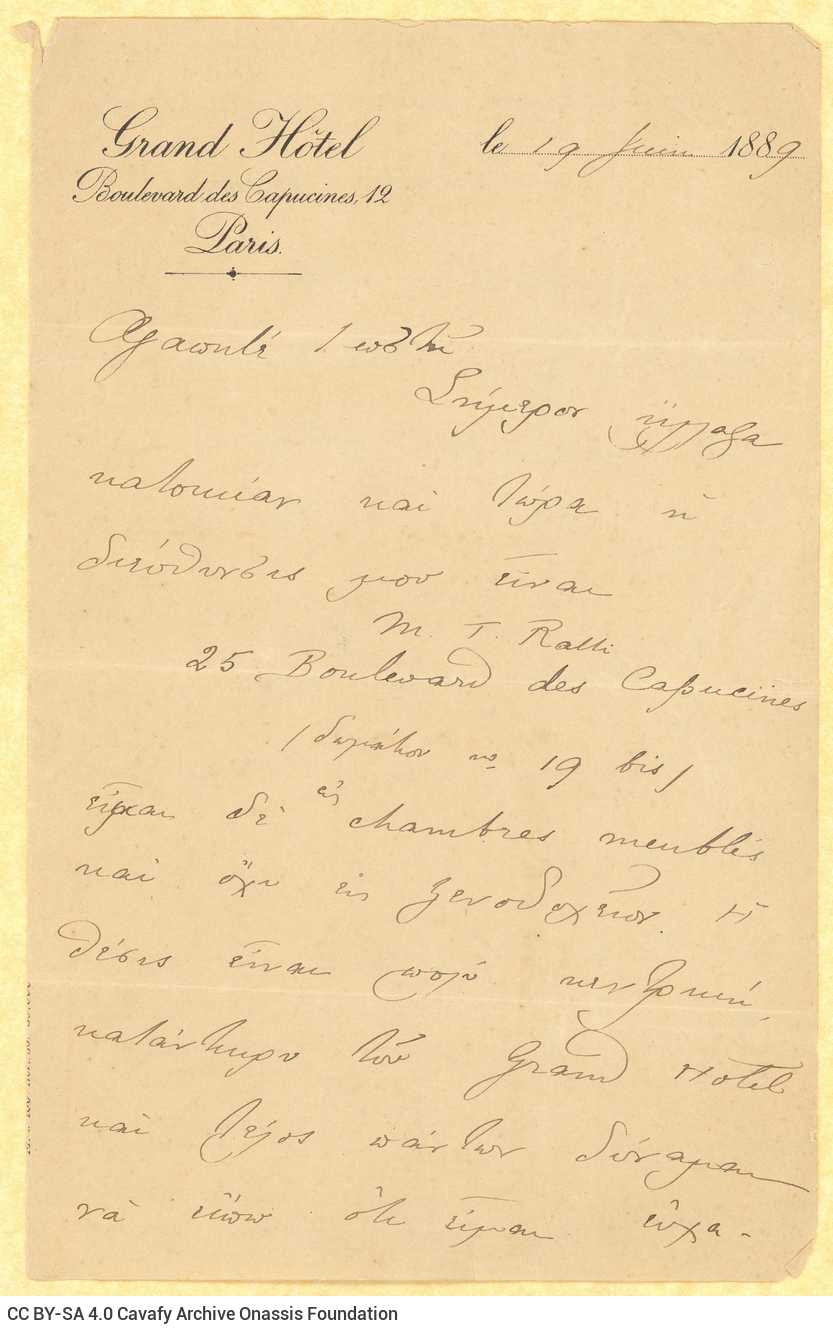 Grand Hôtel
le 19 Juin 1889
Boulevard des Capucines, 12
Paris.
Αγαπητέ Κωστῆ
Σήμερον ἤλλαξα
κατοικίαν καὶ τώρα ἡ
διεύθυνσις μου εἶναι
M. T. Ralli
25 Boulevard des Capucines
(δωμάτιον no 19 bis)
εἶμαι δὲ εἰς chambres meublés
καὶ ὄχι εἰς ξενοδοχεῖον. Ἡ
θέσις εἶναι πολὺ κεντρική,
κατάντικρυ τοῦ Grand Hotel
καὶ τέλος πάντων δύναμαι
νὰ εἴπω ὅτι εἶμαι εὐχα-
CC BY-SA 4.0 Cavafy Archive Onassis Foundation